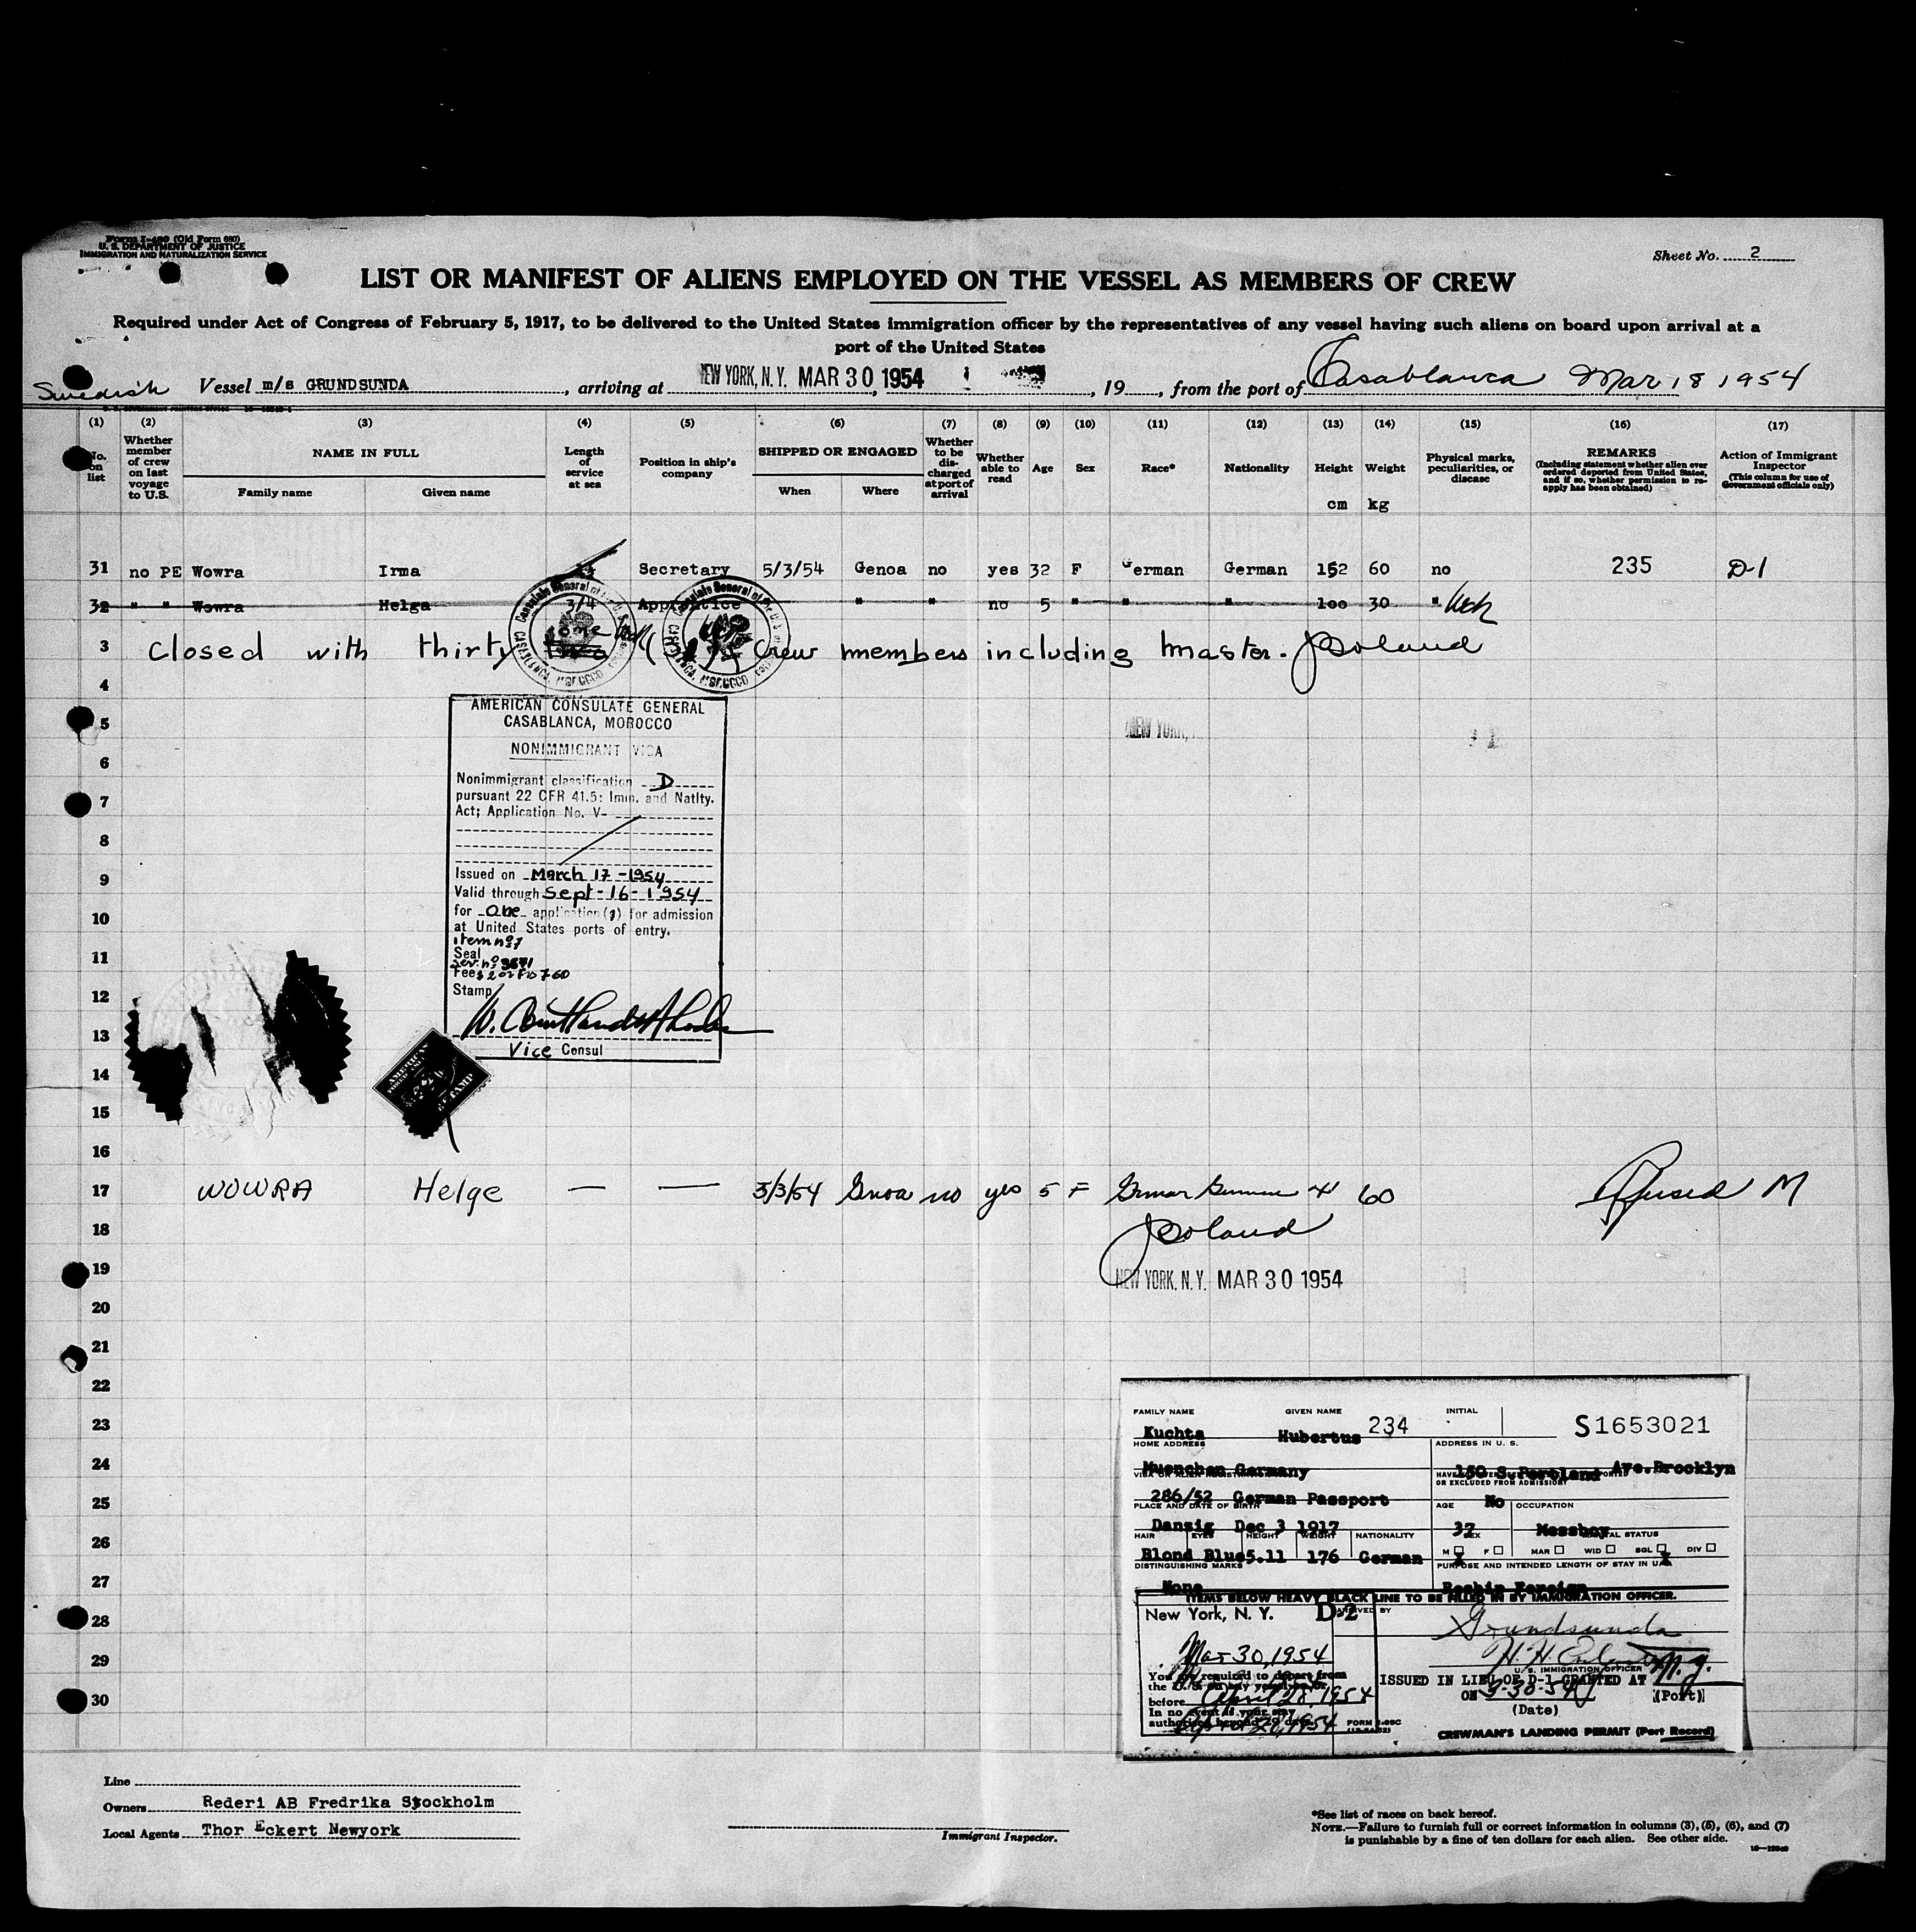 Form I-480 (Old Form 680)
U. S. DEPARTMENT OF JUSTICE
IMMIGRATION AND NATURALIZATION SERVICE
Sheet No. 2
LIST OR MANIFEST OF ALIENS EMPLOYED ON THE VESSEL AS MEMBERS OF CREW
Required under Act of Congress of February 5, 1917, to be delivered to the United States immigration officer by the representatives of any vessel having such aliens on board upon arrival at a
port of the United States
Swedish Vessel m/s GRUNDSUNDA, arriving at NEW YORK, N.Y. MAR 30 1954, 19, from the port of Casablanca Mar 18 1954
(1) (2) (3) (4) (5) (6) (7) (8) (9) (10) (11) (12) (13) (14) (15) (16) (17)
No. on list
Whether member of crew on last voyage to U.S.
NAME IN FULL
Family name
Given name
Length of service at sea
Position in ship's company
SHIPPED OR ENGAGED
When
Where
Whether to be discharged at port of arrival
Whether able to read
Age
Sex
Race*
Nationality
Height
cm
Weight
kg
Physical marks, peculiarities, or disease
REMARKS
(Including statement whether alien ever ordered deported from United States, and if so, whether permission to reapply has been obtained)
Action of Immigrant Inspector
(This column for use of Government officials only)
31 no PE Wowra Irma Secretary 5/3/54 Genoa no yes 32 F German German 152 60 no 235 D-1
32 " " Wowra Helga 3/4 Apprentice " " no 5 " " " 100 30 "
3 Closed with thirty one two crew members including master. JBoland
Consulate General of the U.S. CASABLANCA, MOROCCO
Consulate General of the U.S. CASABLANCA, MOROCCO
4
AMERICAN CONSULATE GENERAL
CASABLANCA, MOROCCO
NONIMMIGRANT VISA
Nonimmigrant classification D
pursuant 22 CFR 41.5; Imm. and Natlty.
Act; Application No. V-
Issued on March 17-1954
Valid through Sept-16-1954
for One application(s) for admission
at United States ports of entry.
item no 7
Seal
Ser. no 3671
Fee
Stamp
Vice Consul
AMERICAN
STAMP
NEW YORK,
5
6
7
8
9
10
11
12
13
14
15
16
17 WOWRA Helge — — 5/3/54 Genoa no yes 5 F German German 4' 60 Refused M
18 JBoland
19 NEW YORK, N.Y. MAR 30 1954
20
21
22
23
24
25
26
27
28
29
30
FAMILY NAME GIVEN NAME INITIAL
Kuchta Hubertus 234 S1653021
HOME ADDRESS ADDRESS IN U. S.
Muenchen Germany 150 S. Portland Ave. Brooklyn
OR EXCLUDED FROM ADMISSION
286/52 German Passport No
PLACE AND DATE OF BIRTH AGE OCCUPATION
Danzig Dec 3 1917 37 Messboy
HAIR EYES HEIGHT WEIGHT NATIONALITY SEX MARITAL STATUS
M X F MAR WID SGL X DIV
Blond Blue 5.11 176 German
DISTINGUISHING MARKS PURPOSE AND INTENDED LENGTH OF STAY IN U.S.
None Reship Foreign
ITEMS BELOW HEAVY BLACK LINE TO BE FILLED IN BY IMMIGRATION OFFICER.
New York, N. Y. D-2 ARRIVED BY
Grundsunda
Mar 30, 1954
U. S. IMMIGRATION OFFICER
You are required to depart from
the U. S. on any vessel on or
before April 28, 1954
In no event is your stay
authorized beyond 29 days.
April 28, 1954
ISSUED IN LIEU OF D-1 GRANTED AT N.Y.
ON 3-30-54 (Port)
(Date)
CREWMAN'S LANDING PERMIT (Port Record)
Line
Owners Rederi AB Fredrika Stockholm
Local Agents Thor Eckert Newyork
Immigrant Inspector.
*See list of races on back hereof.
NOTE.—Failure to furnish full or correct information in columns (3), (5), (6), and (7)
is punishable by a fine of ten dollars for each alien. See other side.